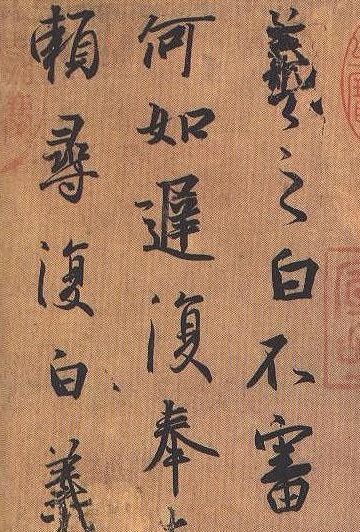 羲之白不審
何如遲復奉
頼尋復白羲